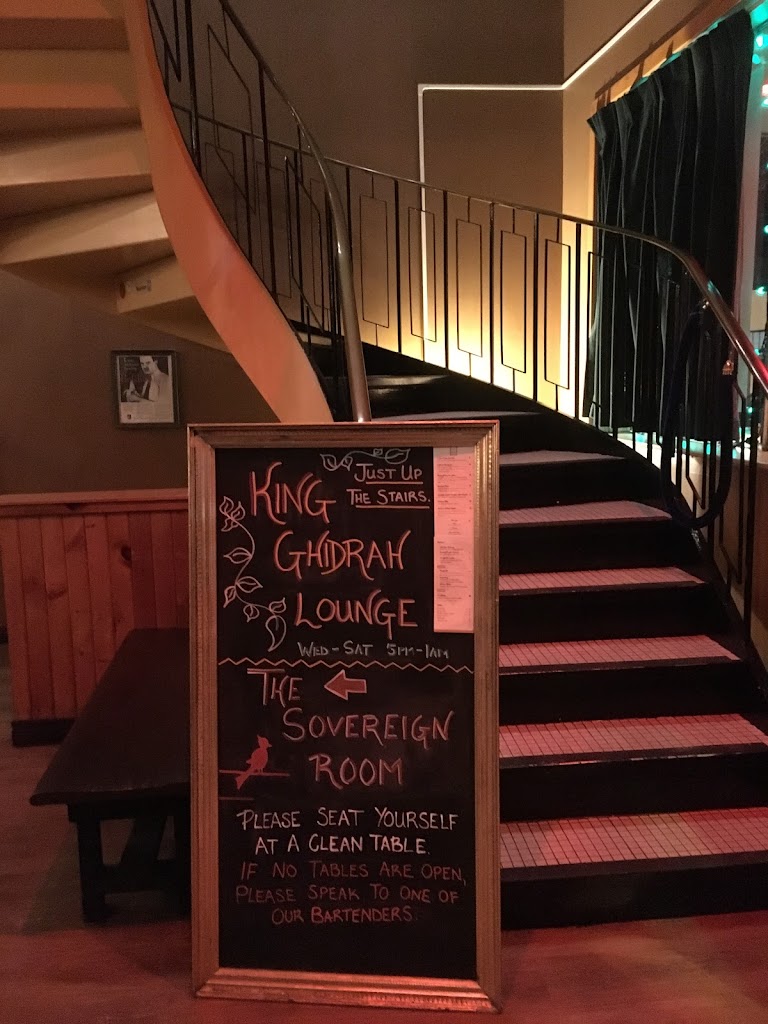 KING
JUST UP
THE STAIRS.
GHIDRAH
LOUNGE
WED - SAT 5PM - 1AM
THE
SOVEREIGN
ROOM
PLEASE SEAT YOURSELF
AT A CLEAN TABLE.
IF NO TABLES ARE OPEN,
PLEASE SPEAK TO ONE OF
OUR BARTENDERS.